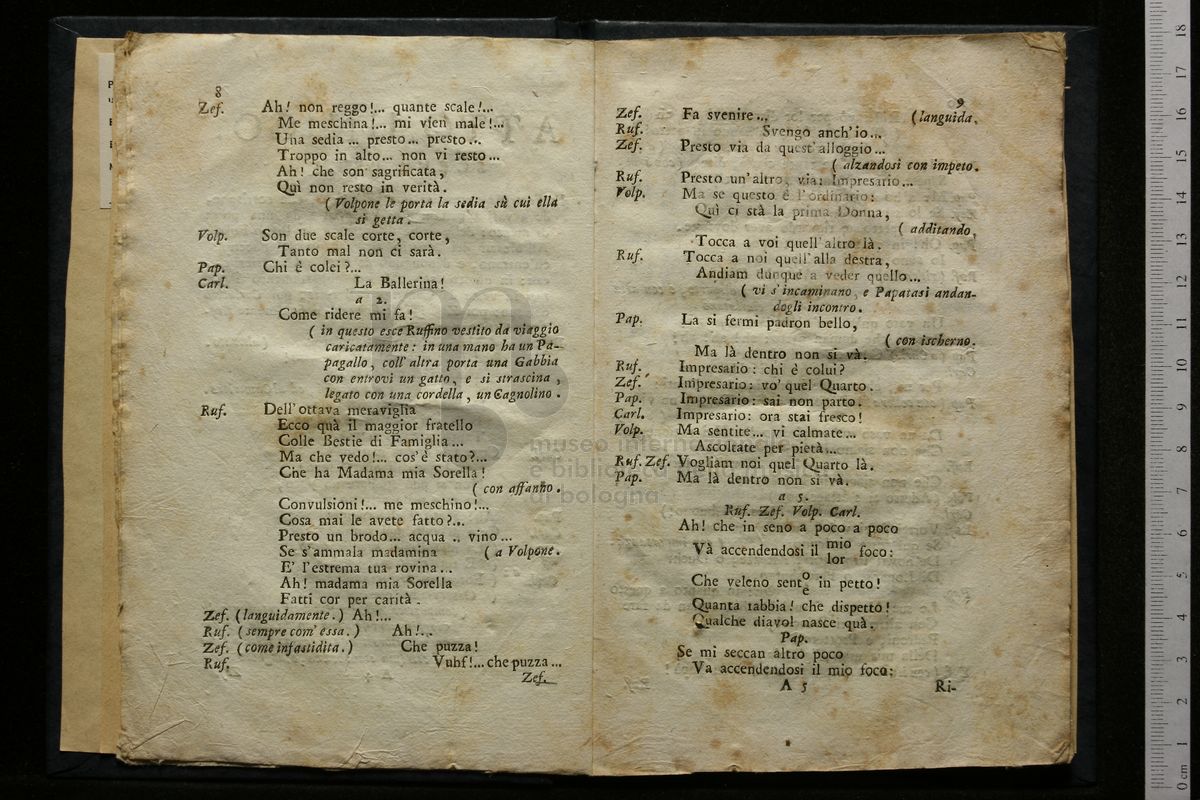 8
Zef. Ah! non reggo!... quante scale!...
Me meschina!... mi vien male!...
Una sedia ... presto... presto...
Troppo in alto... non vi resto...
Ah! che son sagrificata,
Quì non resto in verità.
( Volpone le porta la sedia sù cui ella
si getta.
Volp. Son due scale corte, corte,
Tanto mal non ci sarà.
Pap. Chi è colei?...
Carl. La Ballerina!
a 2.
Come ridere mi fa!
( in questo esce Ruffino vestito da viaggio
caricatamente: in una mano ha un Pa-
pagallo, coll' altra porta una Gabbia
con entrovi un gatto, e si strascina,
legato con una cordella, un Cagnolino.
Ruf. Dell'ottava meraviglia
Ecco quà il maggior fratello
Colle Bestie di Famiglia...
Ma che vedo!... cos'è stato?...
Che ha Madama mia Sorella!
( con affanno.
Convulsioni!... me meschino!...
Cosa mai le avete fatto?...
Presto un brodo... acqua .. vino...
Se s'ammala madamina ( a Volpone.
E' l'estrema tua rovina...
Ah! madama mia Sorella
Fatti cor per carità.
Zef. (languidamente.) Ah!...
Ruf. (sempre com' essa.) Ah!...
Zef. (come infastidita.) Che puzza!
Ruf. Vuhf!... che puzza...
Zef.
9
Zef. Fa svenire... (languida.
Ruf. Svengo anch'io...
Zef. Presto via da quest'alloggio...
( alzandosi con impeto.
Ruf. Presto un'altro, via: Impresario...
Volp. Ma se questo è l'ordinario:
Quì ci stà la prima Donna,
( additando,
Tocca a voi quell'altro là.
Ruf. Tocca a noi quell'alla destra,
Andiam dunque a veder quello...
( vi s'incaminano, e Papatasi andan-
dogli incontro.
Pap. La si fermi padron bello,
( con ischerno.
Ma là dentro non si và.
Ruf. Impresario: chi è colui?
Zef. Impresario: vo' quel Quarto.
Pap. Impresario: sai non parto.
Carl. Impresario: ora stai fresco!
Volp. Ma sentite... vi calmate...
Ascoltate per pietà...
Ruf. Zef. Vogliam noi quel Quarto là.
Pap. Ma là dentro non si và.
a 5.
Ruf. Zef. Volp. Carl.
Ah! che in seno a poco a poco
Và accendendosi il mio lor foco:
Che veleno sento e in petto!
Quanta rabbia! che dispetto!
Qualche diavol nasce quà.
Pap.
Se mi seccan altro poco
Va accendendosi il mio foco:
A 5 Ri-